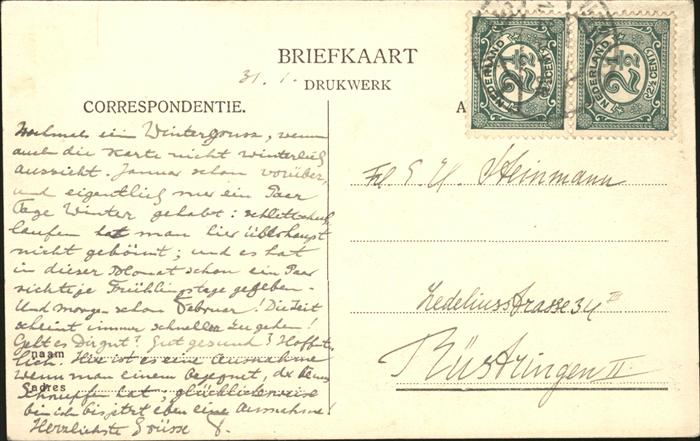 BRIEFKAART
31. 1.
DRUKWERK
CORRESPONDENTIE.
A
NEDERLAND 2½ CENT
NEDERLAND 2½ CENT
Nochmals ein Wintergruss, wenn
auch die Karte nicht winterlich
aussieht. Januar schon vorüber,
und eigentlich nur ein Paar
Tage Winter gehabt: schlittschuh
laufen hat man hier überhaupt
nicht gekönnt; und es hat
in dieser Monat schon ein Paar
richtige Frühlingstage gegeben.
Und morgen schon Februar! Die Zeit
scheint immer schneller zu gehen!
Geht es Dir gut? Gut gesund? Hoffent-
lich. Hier ist es eine Ausnahme
naam
wenn man einem begegnet, der keinen
adres
Schnupfen hat; glücklicherweise
bin ich bis jetzt eben eine Ausnahme!
Herzlichste Grüsse
Frl E. H. Steinmann
Zedeliusstrasse 34 III
Rüstringen II.